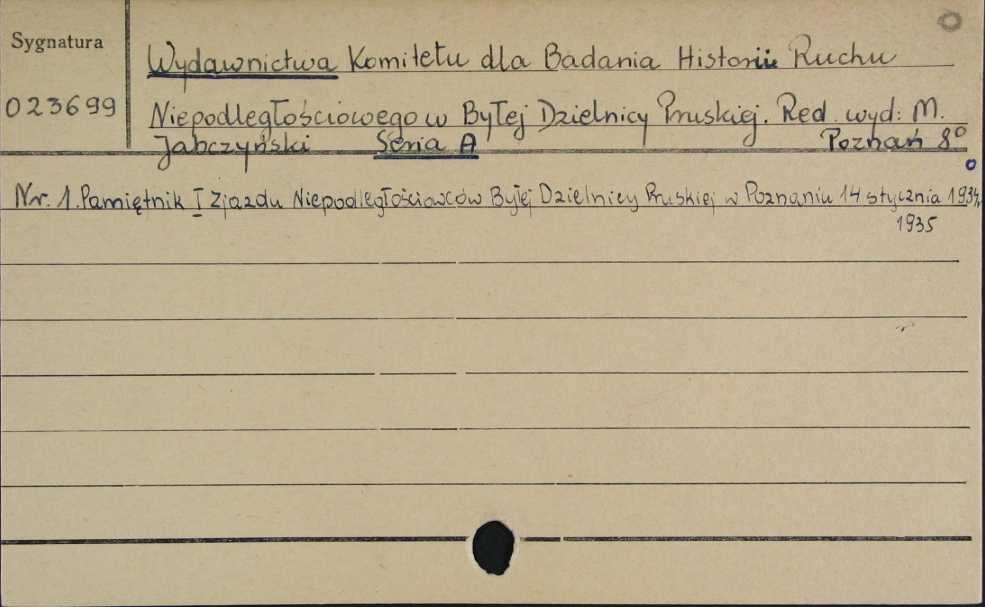 Sygnatura
023699
Wydawnictwa Komitetu dla Badania Historii Ruchu
Niepodległościowego w Byłej Dzielnicy Pruskiej. Red. wyd: M.
Jabczyński Seria A Poznań 8°
Nr. 1. Pamiętnik I Zjazdu Niepodległościowców Byłej Dzielnicy Pruskiej w Poznaniu 14 stycznia 1934r.
1935